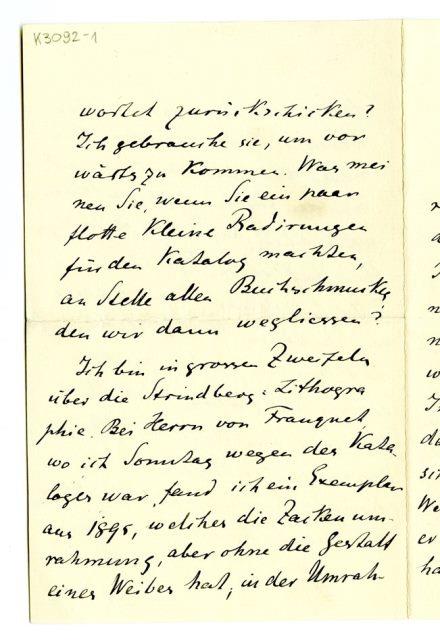 K3092-1
wortet zurückschicken?
Ich gebrauche sie, um vor
wärts zu kommen. Was mei
nen Sie, wenn Sie ein paar
flotte kleine Radirungen
für den Katalog machten,
an Stelle allen Buchschmuckes,
den wir dann wegliessen?
Ich bin in grossen Zweifeln
über die Strindberg-Lithogra
phie. Bei Herrn von Franquet,
wo ich Sonntag wegen des Kata-
loges war, fand ich ein Exemplar
aus 1895, welches die Zackenum-
rahmung, aber ohne die Gestalt
eines Weibes hat, in der Umrah-